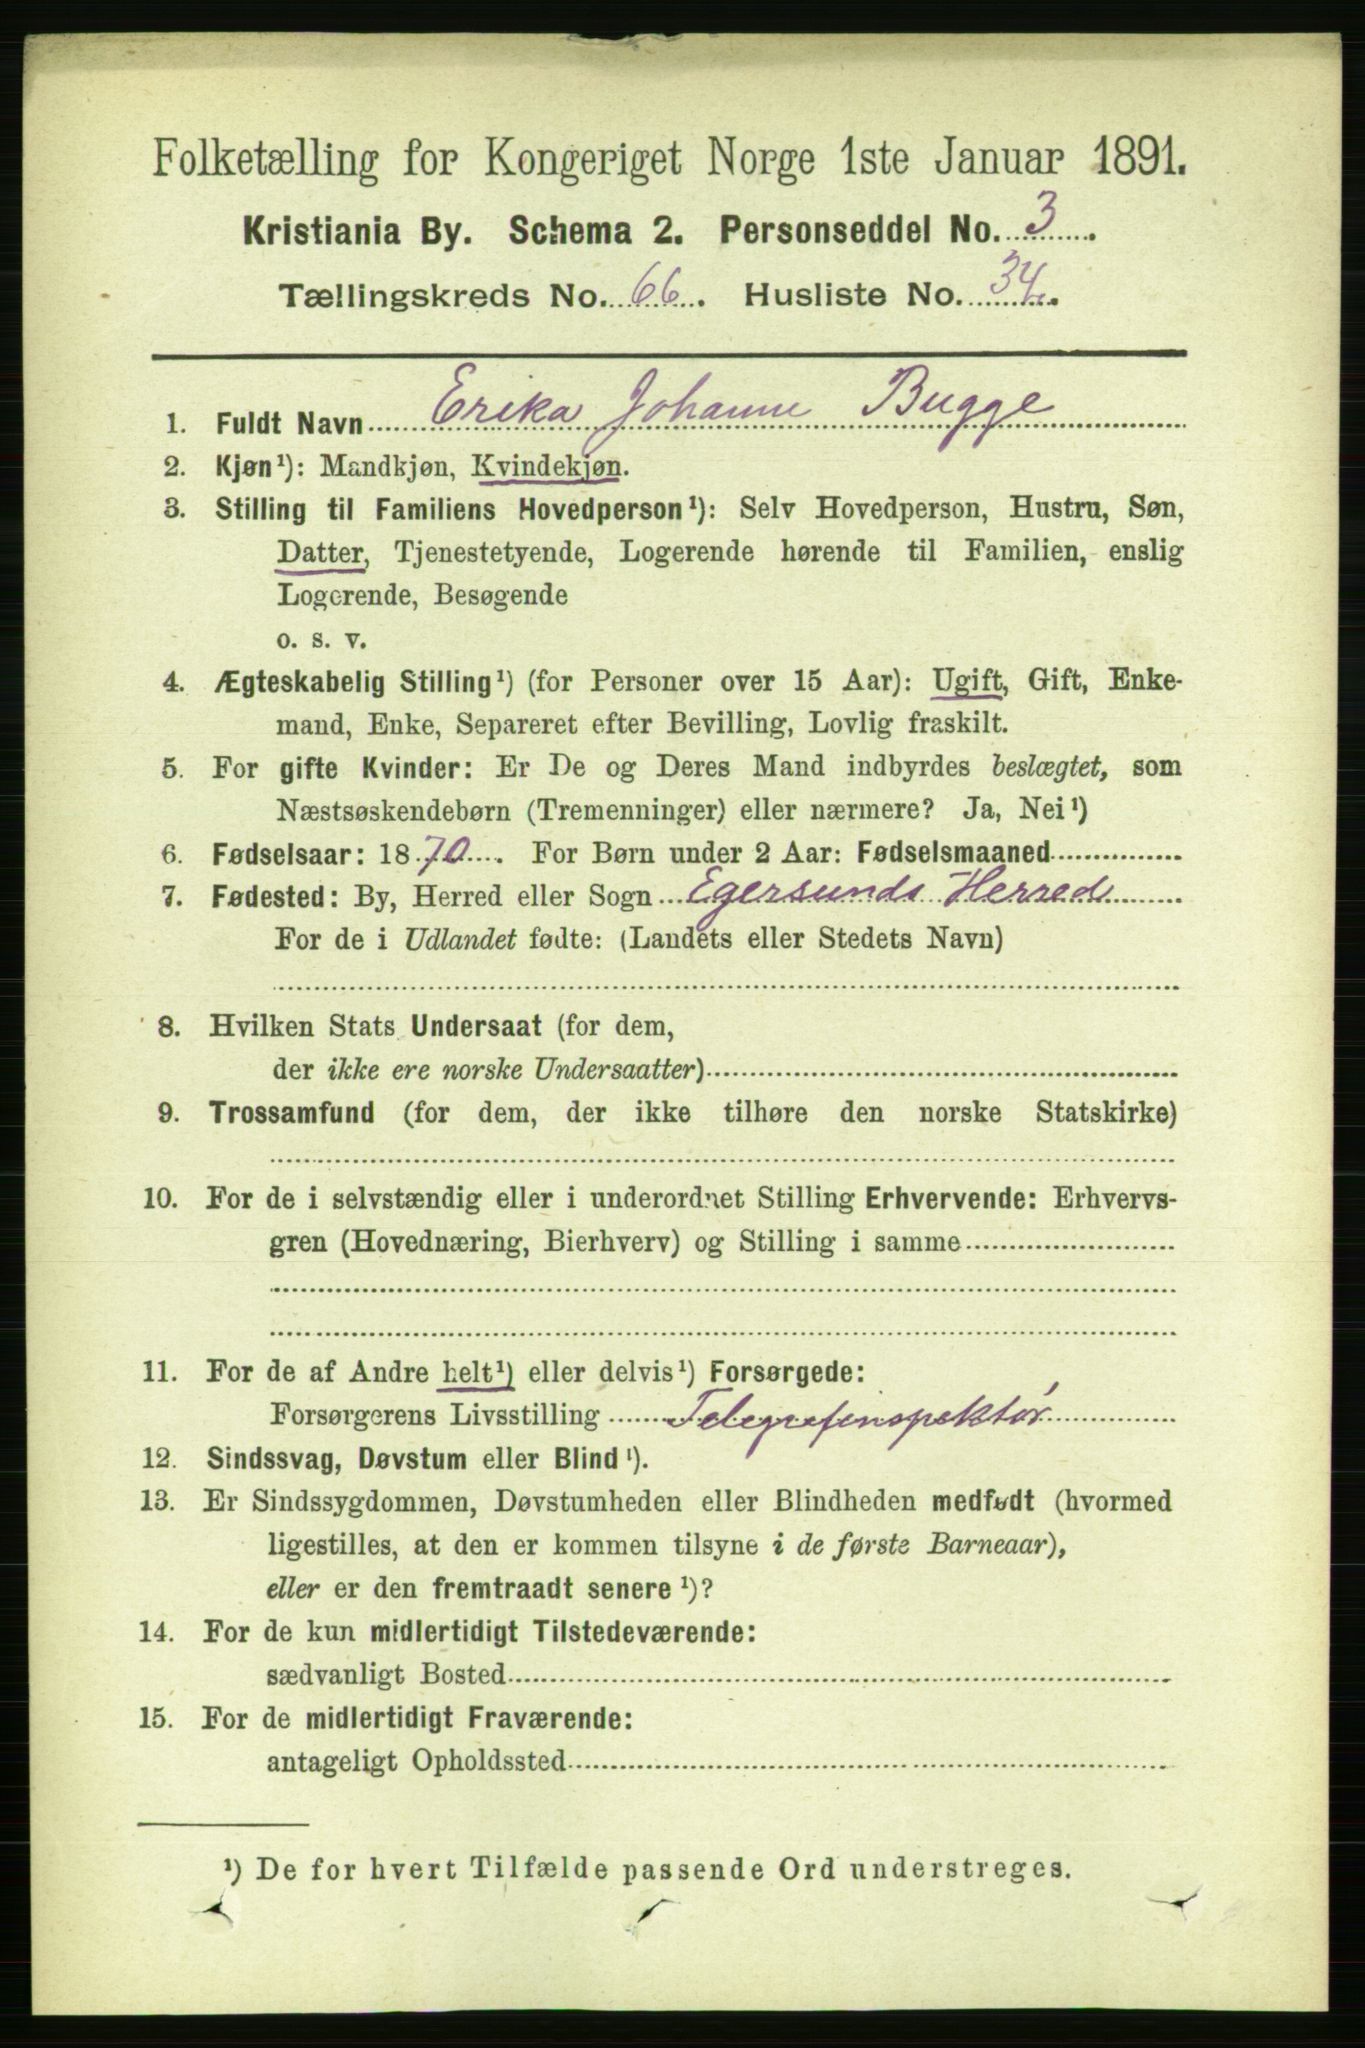 Folketælling for Kongeriget Norge 1ste Januar 1891.
Kristiania By. Schema 2. Personseddel No. 3.
Tællingskreds No. 66. Husliste No. 34.
1. Fuldt Navn Erika Johanne Bugge
2. Kjøn¹): Mandkjøn, Kvindekjøn.
3. Stilling til Familiens Hovedperson¹): Selv Hovedperson, Hustru, Søn,
Datter, Tjenestetyende, Logerende hørende til Familien, enslig
Logerende, Besøgende
o. s. v.
4. Ægteskabelig Stilling¹) (for Personer over 15 Aar): Ugift, Gift, Enke-
mand, Enke, Separeret efter Bevilling, Lovlig fraskilt.
5. For gifte Kvinder: Er De og Deres Mand indbyrdes beslægtet, som
Næstsøskendebørn (Tremenninger) eller nærmere? Ja, Nei¹)
6. Fødselsaar: 1870. For Børn under 2 Aar: Fødselsmaaned
7. Fødested: By, Herred eller Sogn Egersunds Herred
For de i Udlandet fødte: (Landets eller Stedets Navn)
8. Hvilken Stats Undersaat (for dem,
der ikke ere norske Undersaatter)
9. Trossamfund (for dem, der ikke tilhøre den norske Statskirke)
10. For de i selvstændig eller i underordnet Stilling Erhvervende: Erhvervs-
gren (Hovednæring, Bierhverv) og Stilling i samme
11. For de af Andre helt¹) eller delvis¹) Forsørgede:
Forsørgerens Livsstilling Telegrafinspektør
12. Sindssvag, Døvstum eller Blind¹).
13. Er Sindssygdommen, Døvstumheden eller Blindheden medfødt (hvormed
ligestilles, at den er kommen tilsyne i de første Barneaar),
eller er den fremtraadt senere¹)?
14. For de kun midlertidigt Tilstedeværende:
sædvanligt Bosted
15. For de midlertidigt Fraværende:
antageligt Opholdssted
¹) De for hvert Tilfælde passende Ord understreges.